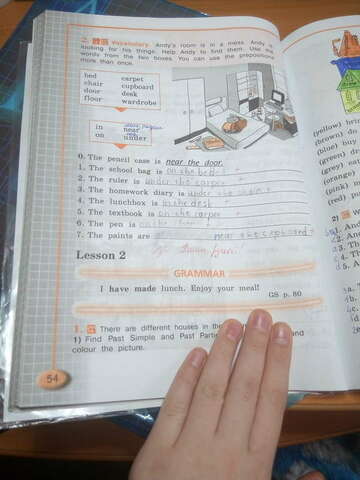 2. Vocabulary. Andy's room is in a mess. Andy is
looking for his things. Help Andy to find them. Use the
words from the two boxes. You can use the prepositions
more than once.
bed carpet
chair cupboard
door desk
floor wardrobe
in near
on under
0. The pencil case is near the door.
1. The school bag is on the bed
2. The ruler is under the carpet
3. The homework diary is under the
4. The lunchbox is in the desk
5. The textbook is on the carpet
6. The pen is on the
7. The paints are near the cupboard
Lesson 2
GRAMMAR
I have made lunch. Enjoy your meal!
GS p. 80
1. There are different houses in the
1) Find Past Simple and Past and
colour the picture.
54
(yellow) bri
(brown) d
(green) d
(blue) buy
(brown)
(purple)
(pink)
(green)
(red)
(gray)
(orange)
2)
1. And
2. An
3. A
4. Th
5. A